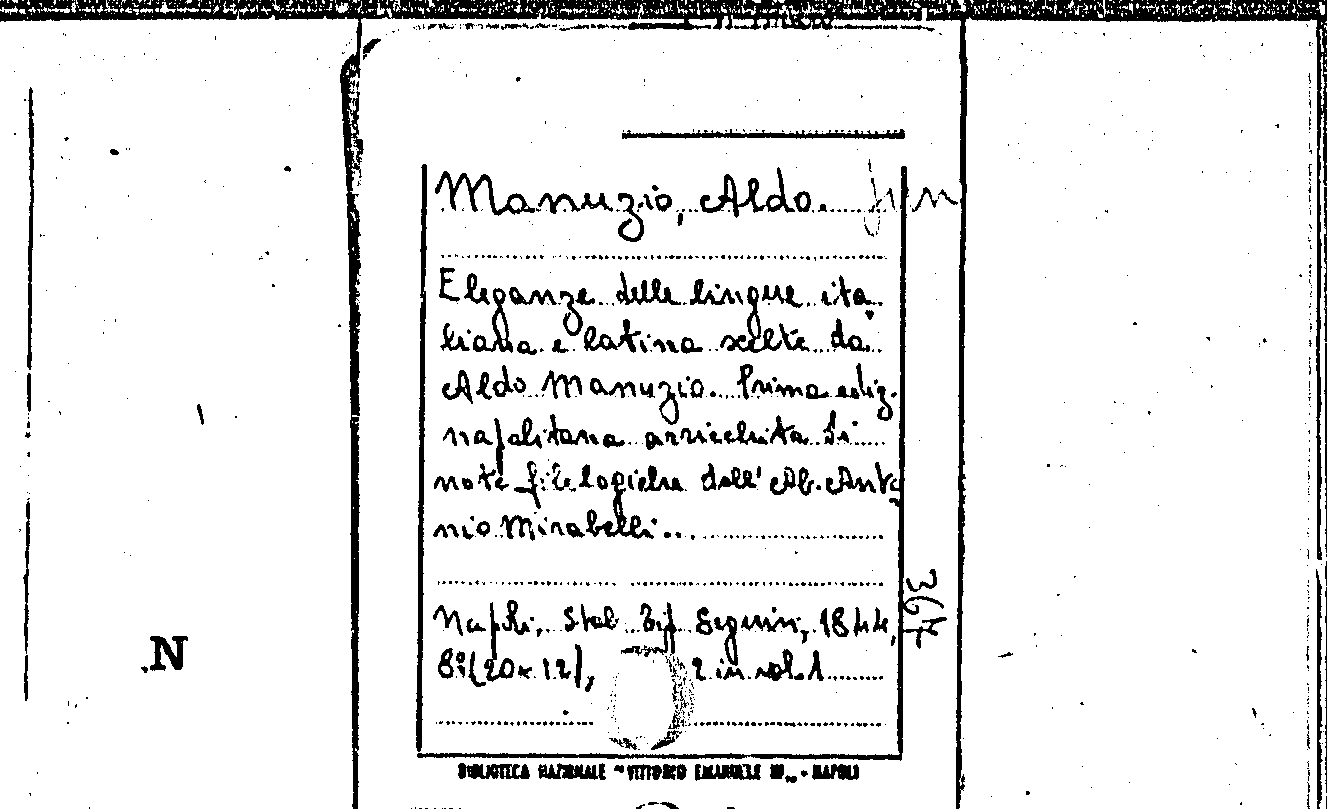 Manuzio, Aldo. jun
Eleganze delle lingue ita
liana e latina scelte da
Aldo Manuzio. Prima ediz.
napolitana arricchita di
note filologiche dall' Ab. Anto
nio Mirabelli...
Napoli, Stab. Tip. Seguin, 1844,
8º (20x12), 2 in vol. 1
BIBLIOTECA NAZIONALE "VITTORIO EMANUELE III" - NAPOLI
364
N